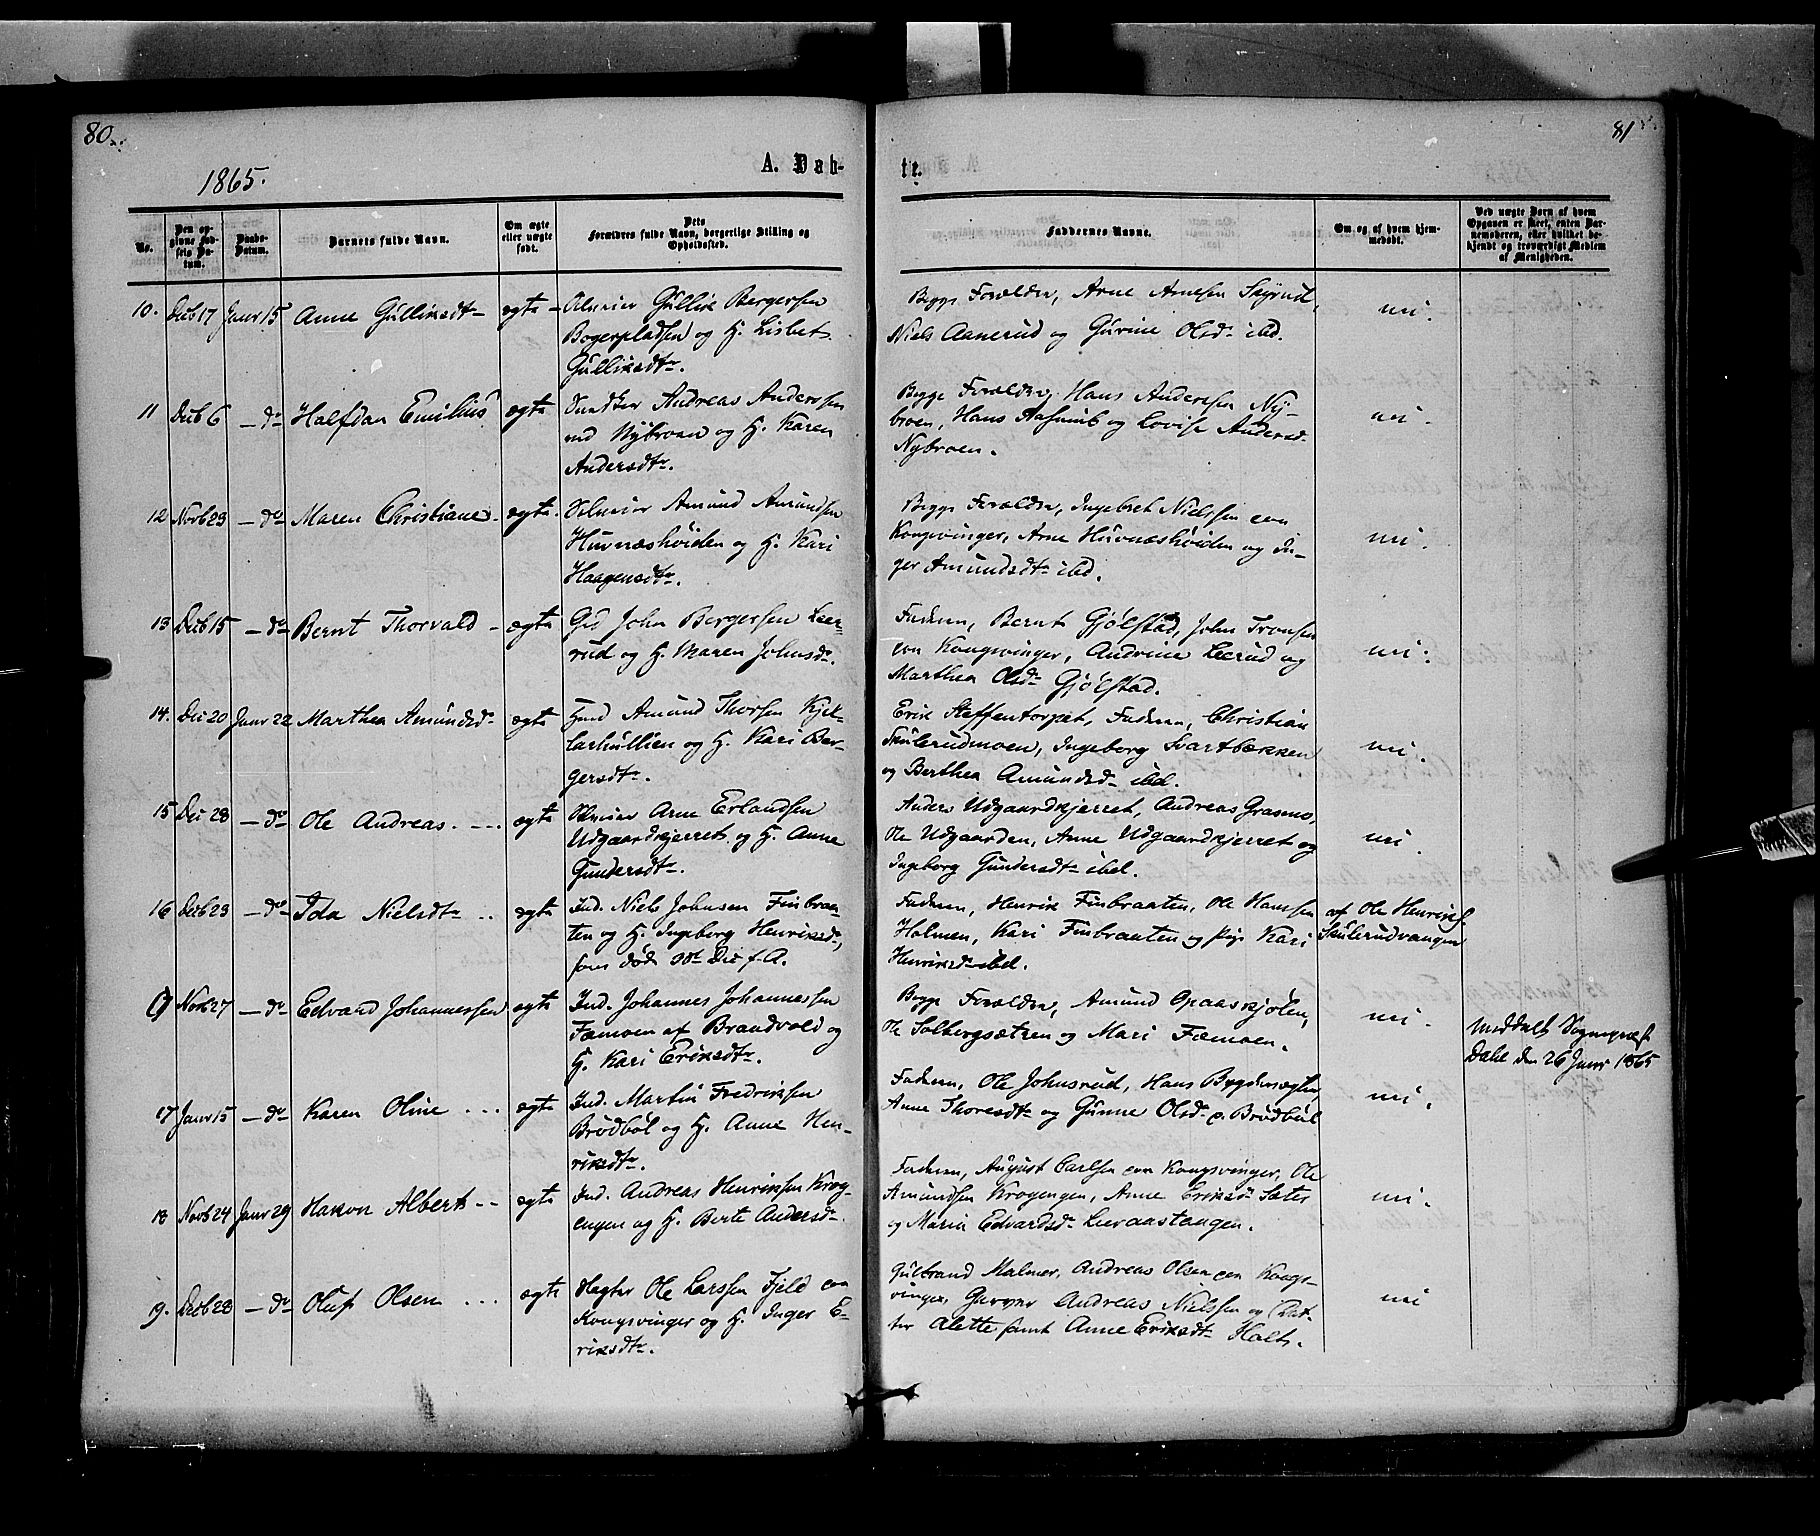 80.
81
1865.
A. Døb-
te.
No.
Den opgivne Fødsels Datum.
Daabs-Datum.
Barnets fulde Navn.
Om ægte eller uægte født.
Dets Forældres fulde Navn, borgerlige Stilling og Opholdssted.
Faddernes Navne.
Om og af hvem hjemmedøbt.
Ved uægte Børn af hvem Opgaven er skeet, enten Barnemoderen, eller hvilket bekjendt og troværdigt Medlem af Menigheden.
10. Decb 17 Janr 15 Anne Gulliksdtr ægte Selveier Gullik Bergersen
Bogerpladsen og H. Lisbet
Gulliksdtr.
Begge Forældre, Arne Arnesen Skyrud,
Niels Aanerud og Gurine Olsdr ibd.
nei.
11 Decb 6 - do Halfdan Emilius ægte Andreas Anderssen
ved Nybroen og H. Karen
Andersdtr.
Begge Forældre, Hans Anderssen Ny-
broen, Hans Aasumb og Lovise Andersdr
Nybroen.
nei.
12 Novb 23 - do Maren Christiane ægte. Selveier Amund Amundsen
Huvnæshøiden og H. Kari
Haagensdtr.
Begge Forældre, Ingebret Nielssen paa
Kongsvinger, Arne Huvnæshøiden og In-
ger Amundsdtr ibd.
nei.
13 Decb 15 - do Bernt Thorvald - ægte Gbd John Bergersen Leer-
rud og H. Maren Johnsdr.
Faderen, Bernt Gjølstad, John Tronsen
paa Kongsvinger, Andrine Leerud og
Marthea Olsdr Gjølstad.
nei.
14. Dec 20 Janr 22 Marthea Amundsdr ægte Husmd Amund Thorsen Kjek-
larhullien og H. Kari Ber-
gersdtr.
Erik Steffentorpet, Faderen, Christian
Skulerudmoen, Ingeborg Svartbækken
og Berthea Amundsdr ibd.
nei.
15 Dec 28 - do Ole Andreas. ægte Selveier Arne Erlandsen
Udgaardkjerret og H. Anne
Gundersdtr.
Anders Udgaardkjerret, Andreas Grasmo,
Ole Udgaarden, Anne Udgaardkjerret og
Ingeborg Gundersdtr ibd.
nei
16 Decb 23 - do Ida Nielsdtr ægte Ind. Niels Johnsen Finbraa-
ten og H. Ingeborg Henriksdr,
som døde 30te Dec f. A.
Faderen, Henrik Finbraaten, Ole Hanssen
Holmen, Kari Finbraaten og pige Kari
Henriksdr ibd.
af Ole Henriks.
Skulerudvangen
Novb 27 - do Edvard Johannessen ægte Ind. Johannes Johannessen
Fæmoen af Brandvold og
H. Kari Eriksdtr.
Begge Forældre, Amund Opaaskjølen,
Ole Solbergsætren og Mari Fæmoen.
nei.
Meddelt Sognepræst
Dahl den 26 Janr 1865
17 Janr 15 - do Karen Oline ægte Ind. Martin Fredriksen
Brødbøl og H. Anne Hen-
riksdtr.
Faderen, Ole Johnsrud, Hans Bygdersægten,
Anne Thoresdtr og Gunne Olsdr p. Brødbøl
nei.
18 Novb 24 Janr 29 Hakon Albert ægte Ind. Andreas Henriksen Krog-
engen og H. Berte Andersdr.
Faderen, August Carlsen paa Kongsvinger, Ole
Amundsen Krogengen, Anne Eriksdr Sæter
og Maria Edvardsdr Lievaastangen.
nei.
19. Decb 28 - do Oluf Olsen ægte Vagter Ole Larssen Fjeld paa
Kongsvinger og H. Inger E-
riksdtr.
Gulbrand Malmer, Andreas Olsen paa Kongs-
vinger, Garver Andreas Nielssen og Dat-
ter Alette samt Anne Eriksdtr Holt.
nei